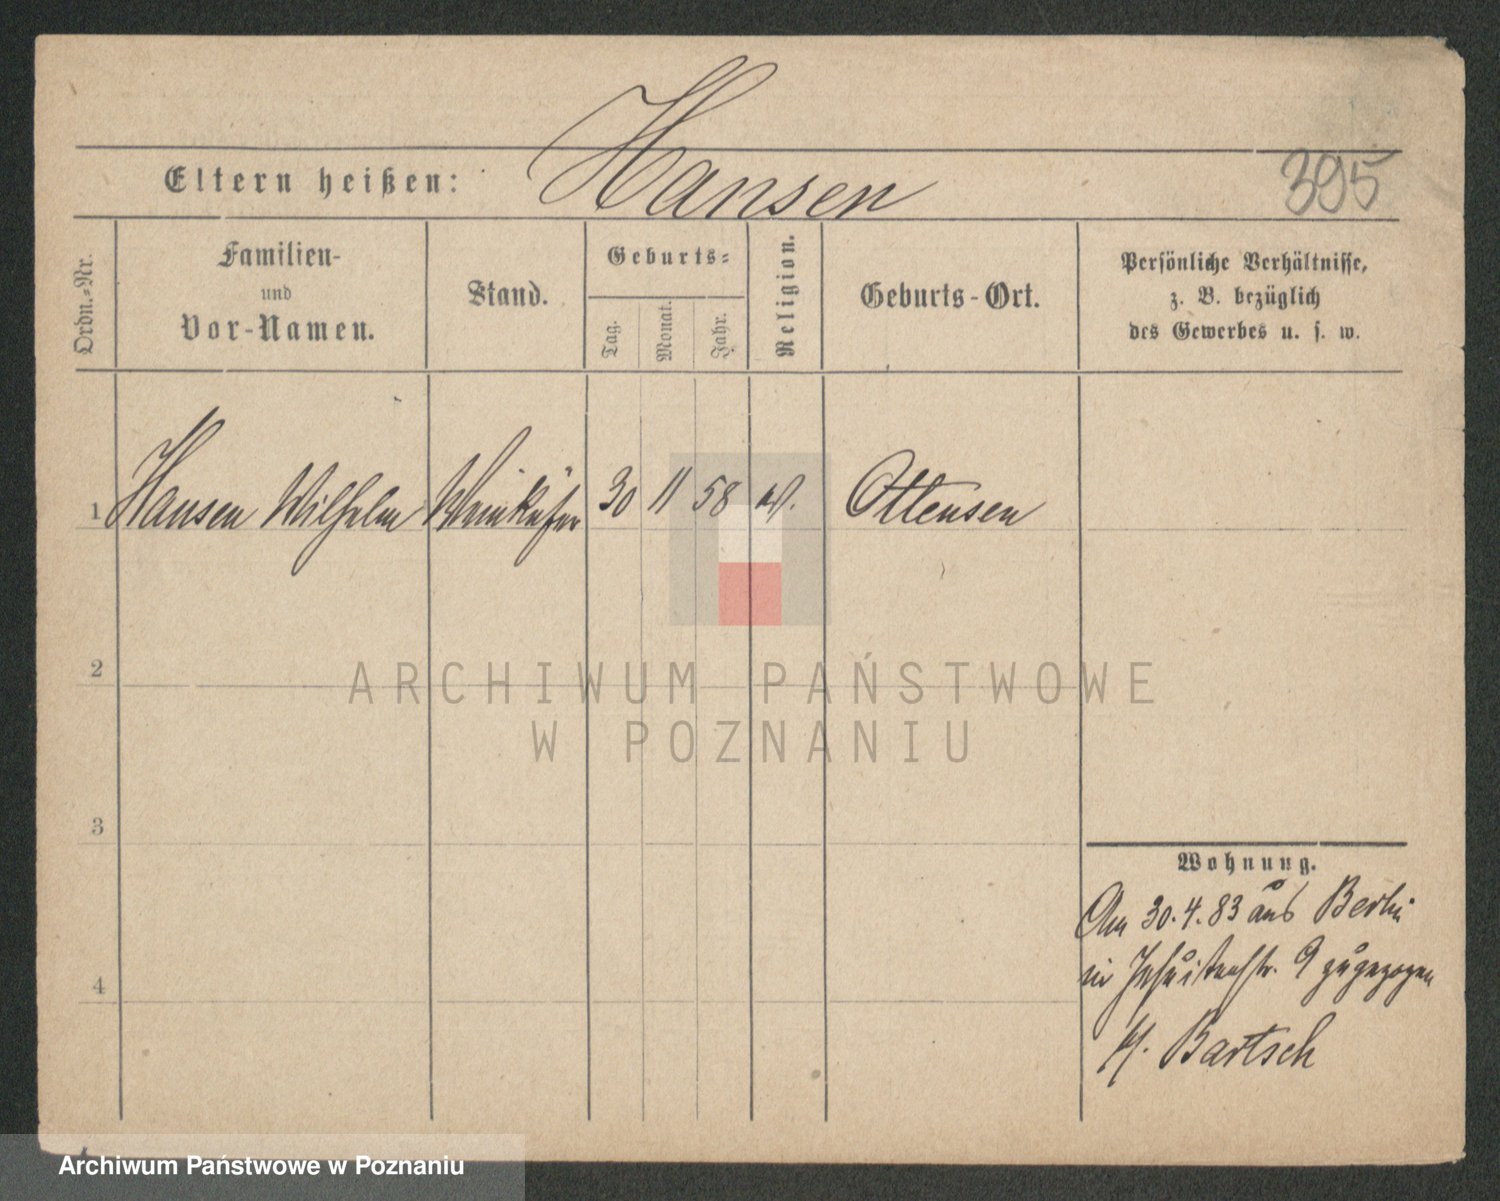 Hansen
395
Eltern heißen:
Ordn.-Nr.
Familien-
und
Vor-Namen.
Stand.
Geburts-
Tag.
Monat.
Jahr.
Religion.
Geburts-Ort.
Persönliche Verhältnisse,
z. B. bezüglich
des Gewerbes u. s. w.
1 Hansen Wilhelm Weinküfer 30 11 58 Ottensen
2
3
4
ARCHIWUM PAŃSTWOWE
W POZNANIU
Wohnung.
Am 30.4.83 aus Berlin
in Jesuitenstr. 9 zugezogen
Bartsch
Archiwum Państwowe w Poznaniu